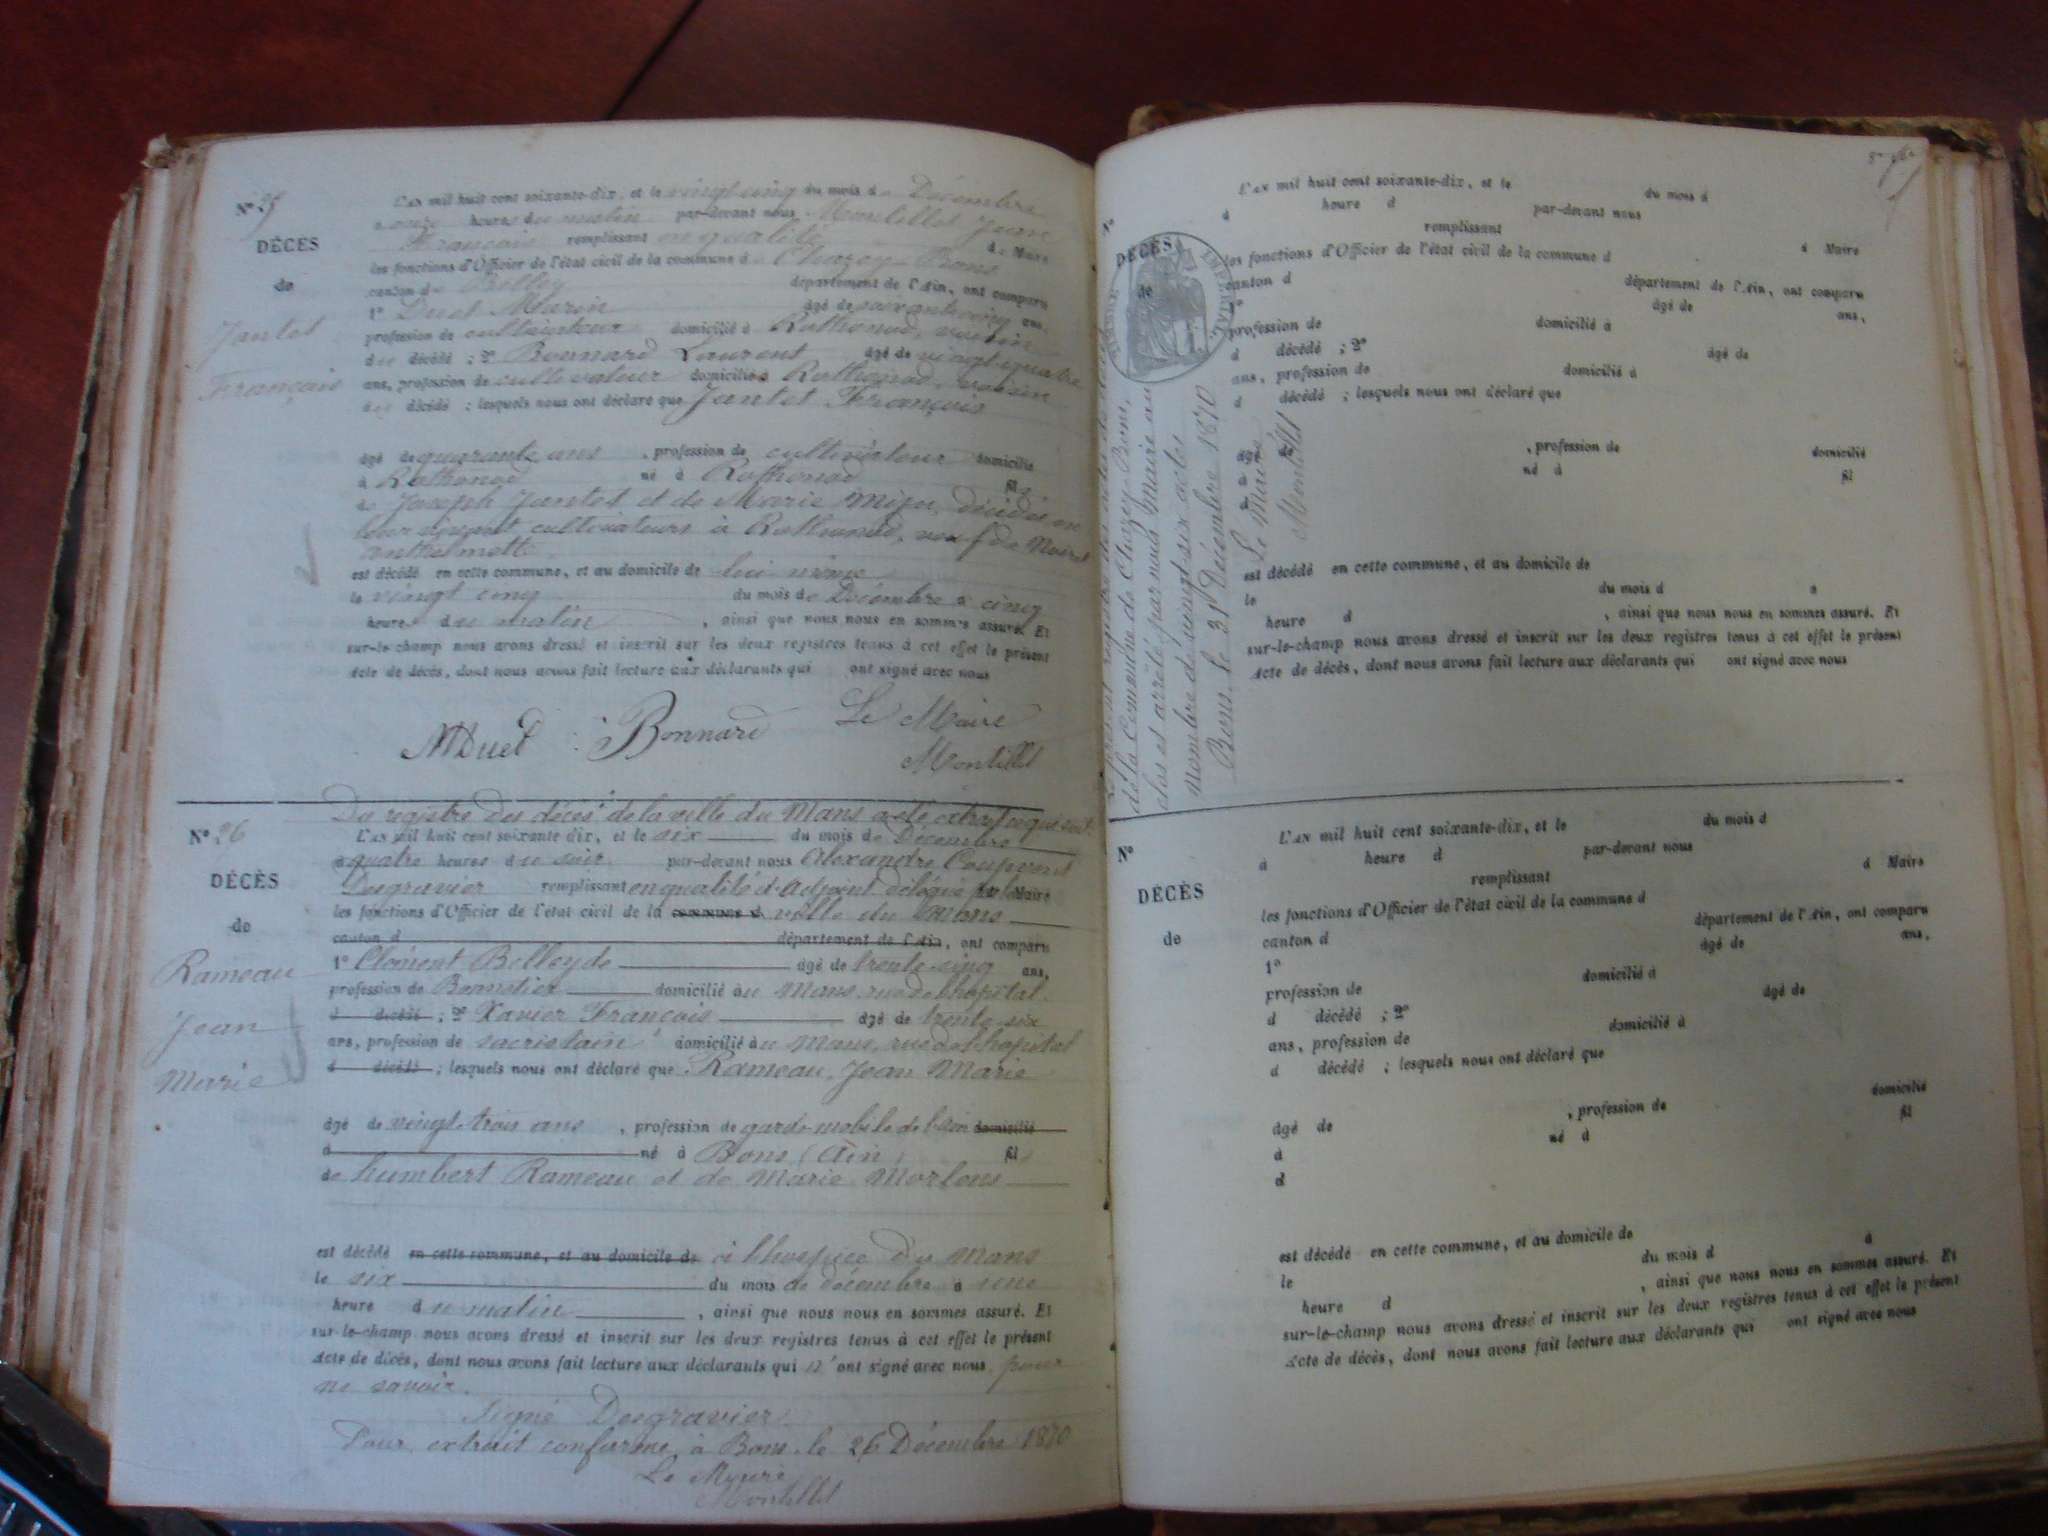 N° 25
DÉCÈS
de
Jantet
François
L'AN mil huit cent soixante-dix, et le vingt cinq du mois de Décembre
à onze heures du matin par-devant nous Montillet Jean
François remplissant en qualité de Maire
les fonctions d'Officier de l'état civil de la commune de Chazey-Bons
canton de Belley département de l'Ain, ont comparu
1° Duet Marin âgé de soixante cinq ans,
profession de cultivateur domicilié à Rothonod, voisin
du décédé ; 2° Bonnard Laurent âgé de vingt-quatre
ans, profession de cultivateur domicilié à Rothonod, voisin
du décédé ; lesquels nous ont déclaré que Jantet François
âgé de quarante ans, profession de cultivateur domicilié
à Rothonod né à Rothonod fils
de Joseph Jantet et de Marie Miju, décédés en
leur vivant cultivateurs à Rothonod, veuf de
anthelmette
est décédé en cette commune, et au domicile de lui même
le vingt cinq du mois de Décembre à cinq
heures du matin, ainsi que nous nous en sommes assuré. Et
sur-le-champ nous avons dressé et inscrit sur les deux registres tenus à cet effet le présent
Acte de décès, dont nous avons fait lecture aux déclarants qui ont signé avec nous
MDuet Bonnard Le Maire
Montillet
Du registre des décès de la ville du Mans a été extrait ce qui suit:
N° 26
DÉCÈS
de
Rameau
Jean
Marie
L'AN mil huit cent soixante dix, et le six du mois de Décembre
à quatre heures du soir par-devant nous Alexandre
Desgravier remplissant en qualité d'Adjoint délégué Maire
les fonctions d'Officier de l'état civil de la commune d ville du Mans
canton d département de l'Ain, ont comparu
1° Clément Belleyde âgé de trente-cinq ans,
profession de Bonnetier domicilié au Mans, rue de l'hopital
d décédé ; 2° Xavier François âgé de trente-six
ans, profession de sacristain domicilié au Mans, rue de l'hopital
d décédé ; lesquels nous ont déclaré que Rameau, Jean Marie
âgé de vingt trois ans, profession de garde mobile de l'ain domicilié
à né à Bons (Ain) fils
de humbert Rameau et de Marie Morlens
est décédé en cette commune, et au domicile de à l'hospice du Mans
le six du mois de décembre à une
heure du matin, ainsi que nous nous en sommes assuré. Et
sur-le-champ nous avons dressé et inscrit sur les deux registres tenus à cet effet le présent
Acte de décès, dont nous avons fait lecture aux déclarants qui n'ont signé avec nous pour
ne savoir.
Signé Desgravier
Pour extrait conforme, à Bons, le 26 Décembre 1870
Le Maire
Montillet
N°
DÉCÈS
de
L'AN mil huit cent soixante-dix, et le du mois d
à heure d par-devant nous
remplissant d Maire
les fonctions d'Officier de l'état civil de la commune d
canton d département de l'Ain, ont comparu
1° âgé de ans,
profession de domicilié à
d décédé ; 2° âgé de
ans, profession de domicilié à
d décédé ; lesquels nous ont déclaré que
âgé de , profession de domicilié
à né à fil
d
est décédé en cette commune, et au domicile de
le du mois d à
heure d , ainsi que nous nous en sommes assuré. Et
sur-le-champ nous avons dressé et inscrit sur les deux registres tenus à cet effet le présent
Acte de décès, dont nous avons fait lecture aux déclarants qui ont signé avec nous
de la Commune de Chazey-Bons,
clos et arrêté par nous Maire au
nombre de vingt-six actes
Bons, le 31 Décembre 1870
Le Maire
Montillet
N°
DÉCÈS
de
L'AN mil huit cent soixante-dix, et le du mois d
à heure d par-devant nous
remplissant d Maire
les fonctions d'Officier de l'état civil de la commune d
canton d département de l'Ain, ont comparu
1° âgé de ans,
profession de domicilié à
d décédé ; 2° âgé de
ans, profession de domicilié à
d décédé ; lesquels nous ont déclaré que
âgé de , profession de domicilié
à né à fil
d
est décédé en cette commune, et au domicile de
le du mois d à
heure d , ainsi que nous nous en sommes assuré. Et
sur-le-champ nous avons dressé et inscrit sur les deux registres tenus à cet effet le présent
Acte de décès, dont nous avons fait lecture aux déclarants qui ont signé avec nous